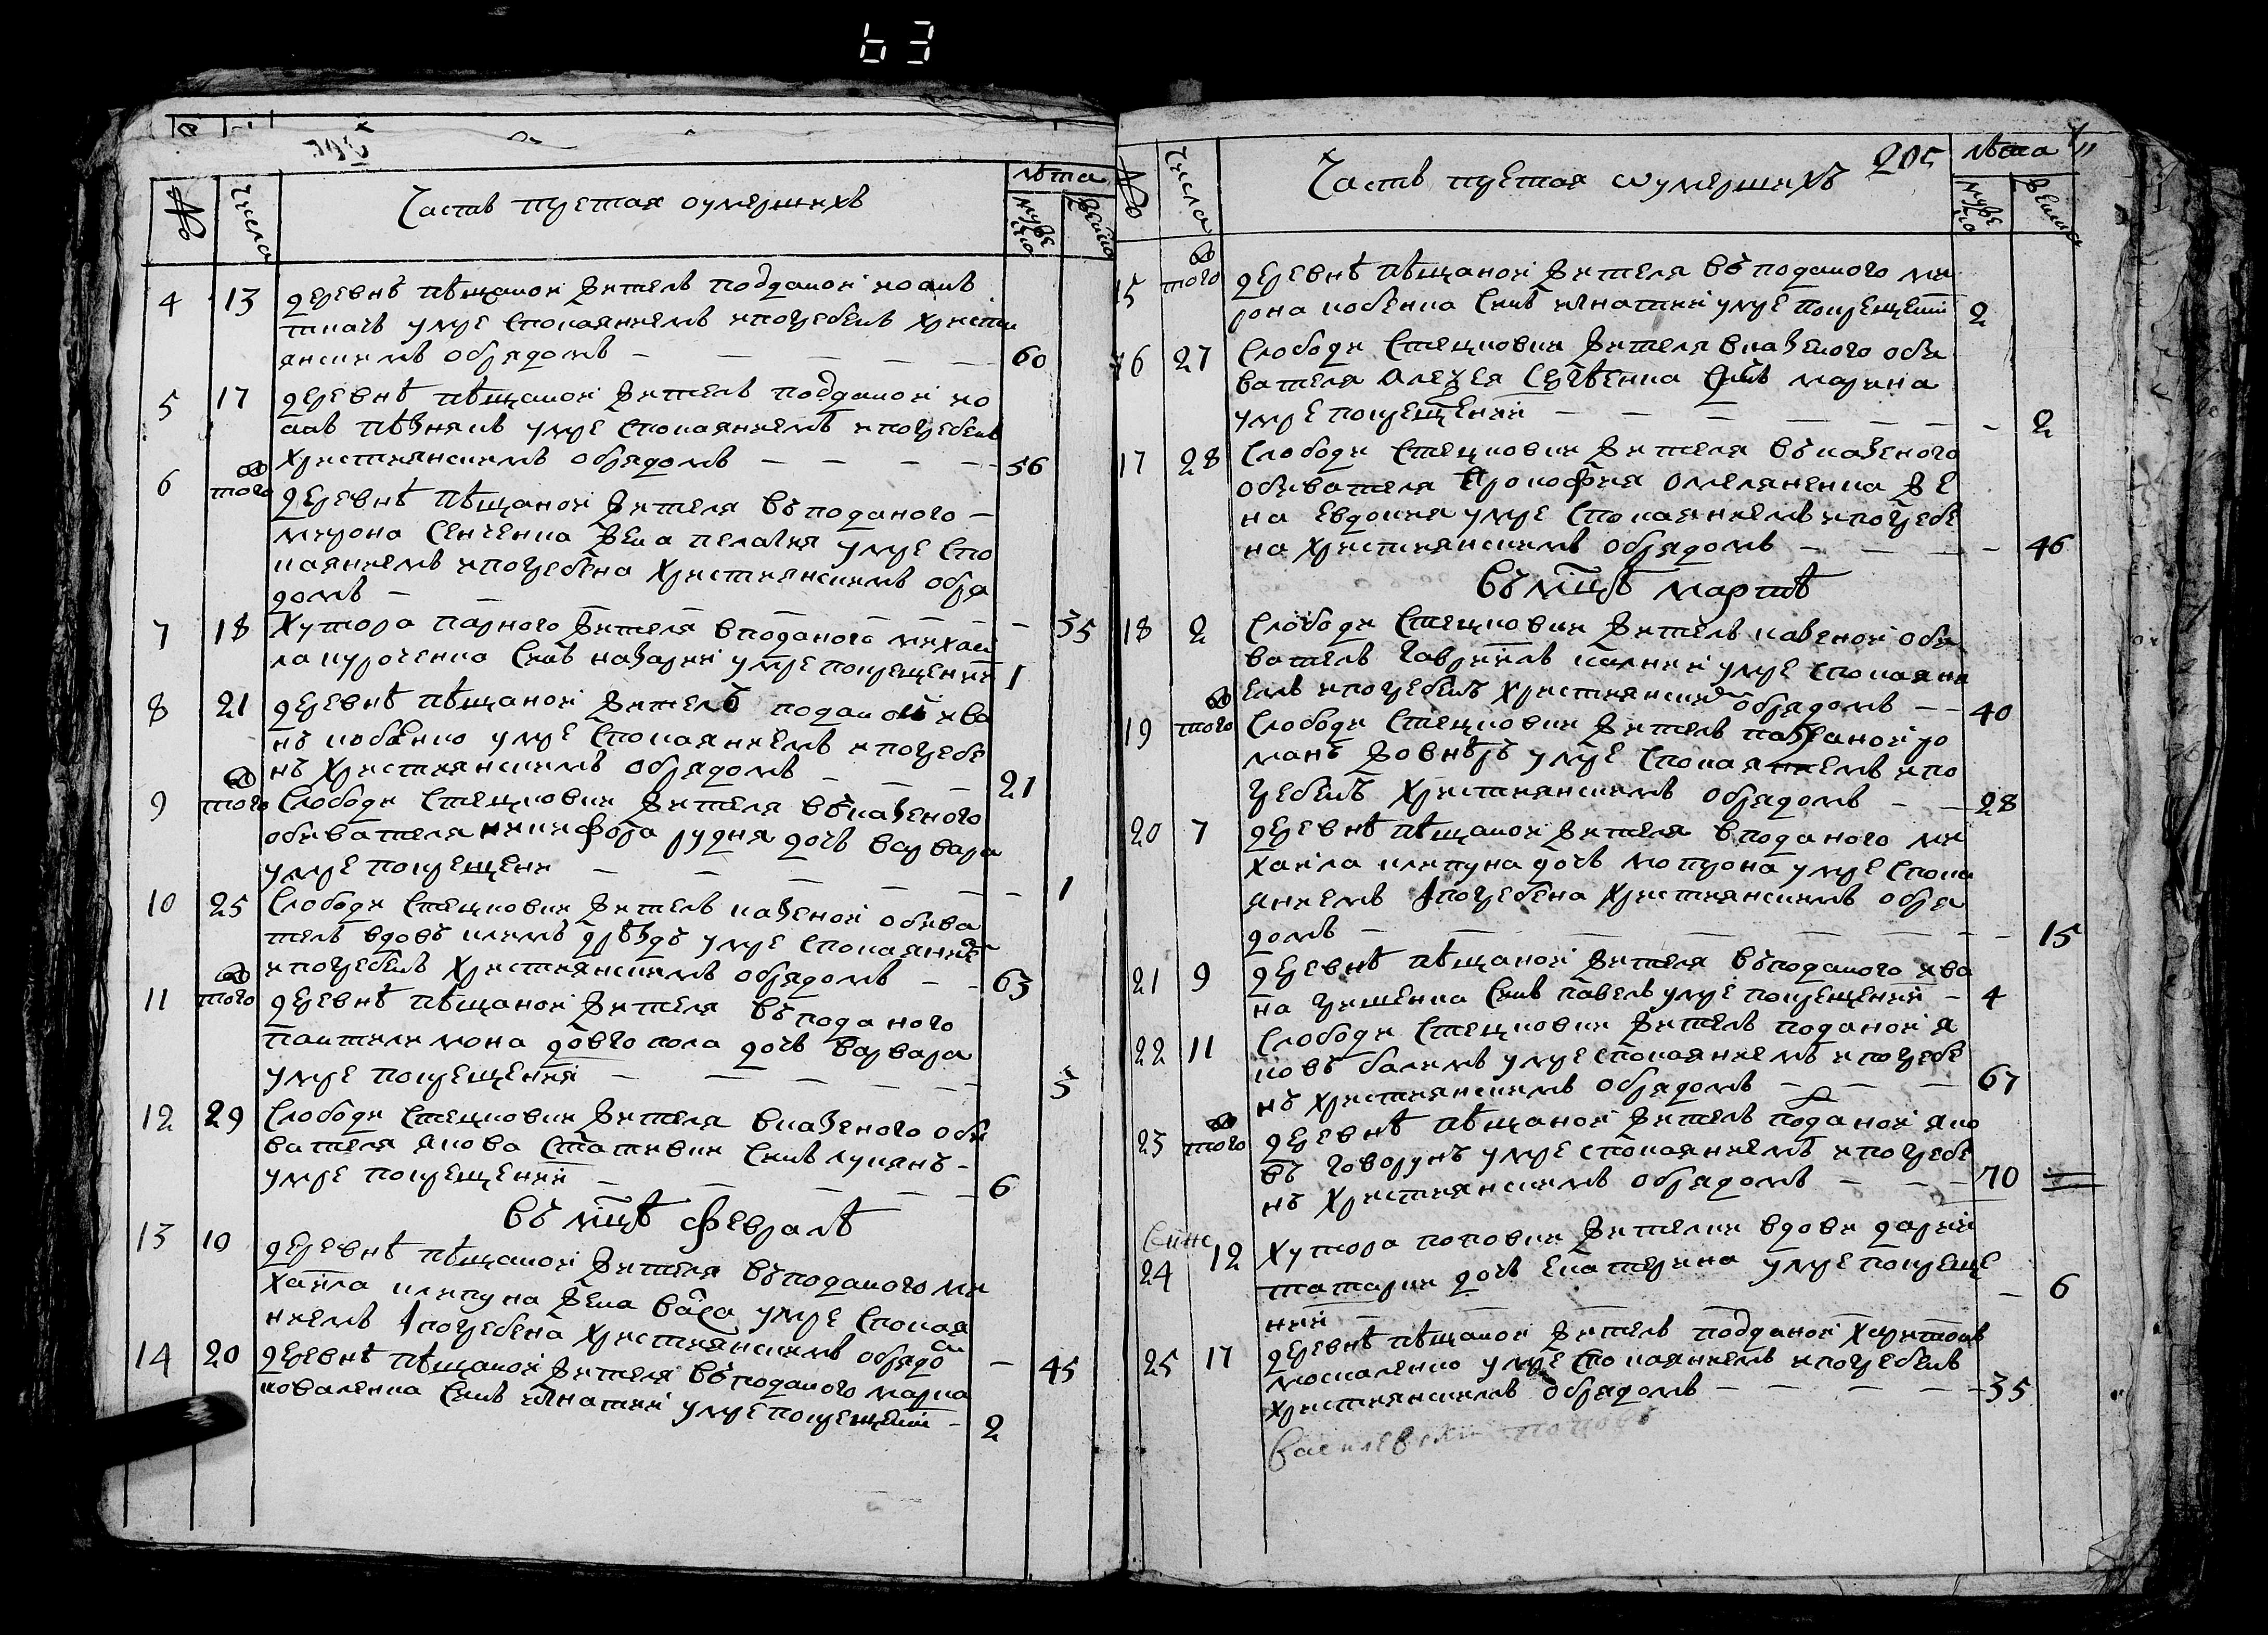 63
№
числа
Часть третая оумершихъ
лѣта
муже
ска
женска
4 13 деревнѣ пѣщаной жителъ подданой иоанъ
ткачъ умре споканиемъ ипогребенъ христи
анскимъ обрядомъ — 60
5 17 деревнѣ пѣщаной жителъ подданой ио
анъ пѣзнякъ умре спокаяниемъ ипогребенъ
християнскимъ обрядомъ — 56
6 того деревнѣ пѣщаной жителя въ поданого —
мирона сенченка жена пелагия умре спо
каяниемъ ипогребена християнскимъ обря
домъ — 35
7 18 хутора парного жителя вподаного михаи
ла куроченка синъ назарий умре покрещении 1
8 21 деревнѣ пѣщаной жителъ поданой ива
нъ кобенко умре спокаяниемъ ипогребе
нъ християнскимъ обрядомъ — 21
9 того слободи стецковки жителя въ казеного
обивателя никифора рудня дочъ варвара
умре покрещени — 1
10 25 слободи стецковки жителъ казеной обива
телъ вдовъ климъ дрѣздъ умре спокаяние
ипогребенъ християнскимъ обрядомъ — 63
11 того деревнѣ пѣщаной жителя въ поданого
пантелимона довгопола дочъ варвара
умре покрещении — 5
12 29 слободи стецковки жителя вказеного оби
вателя якова статывки синъ лукянъ —
умре покрещении — 6
въ мцѣ февралѣ
13 10 деревнѣ пѣщаной жителя въ поданого ми
хаила клипуна жена васса умре спокая
ниемъ ипогребена християнскимъ обрядо — 45
14 20 деревнѣ пѣщаной жителя въ поданого марка
коваленка синъ игнатий умре покрещении — 2
№
числа
Часть третая оумершихъ
205
лѣта
муже
ска
женска
15 того деревнѣ пѣщаной жителя въ поданого ми
рона кобенка синъ игнатий умре покрещении 2
16 27 слободи стецковки жителя вказеного оби
вателя алезея сергѣенка марина
умре покрещении — 2
17 28 слободи стецковки жителя въ казеного
обивателя прокофия омеляненка же
на евдокия умре спокаяниемъ ипогребе
на християнскимъ обрядомъ — 46
въ мцѣ мартѣ
18 2 слободи стецковки жителъ казеной оби
ватель гавриилъ калний умре спокаяни
емъ ипогребенъ християнским обрядомъ — 40
19 того слободи стецковки жителъ казеной ро
манъ жовнѣръ умре спокаяниемъ ипо
гребенъ християнскимъ обрядомъ — 28
20 7 деревнѣ пѣщаной жителя вподаного ми
хаила клипуна дочъ мотрона умре спока
яниемъ ипогребена християнскимъ обря
домъ — 15
21 9 деревнѣ пѣщаной жителя въ поданого ива
на гришенка синъ павелъ умре покрещении — 4
22 11 слободи стецковки жителъ поданой я
ковъ балимъ умре спокаяниемъ ипогребе
нъ християнскимъ обрядомъ — 67
23 того деревнѣ пѣщаной жителъ поданой яко
въ говорунъ умре спокаяниемъ ипогребе
нъ християнскимъ обрядомъ — 70
24 12 хутора поповки жителки вдови дарии
татарки дочъ екатерина умре покреще
нии — 6
25 17 деревнѣ пѣщаной жителъ подданой харитонъ
москаленко умре спокаяниемъ ипогребенъ
християнскимъ обрядомъ — 35